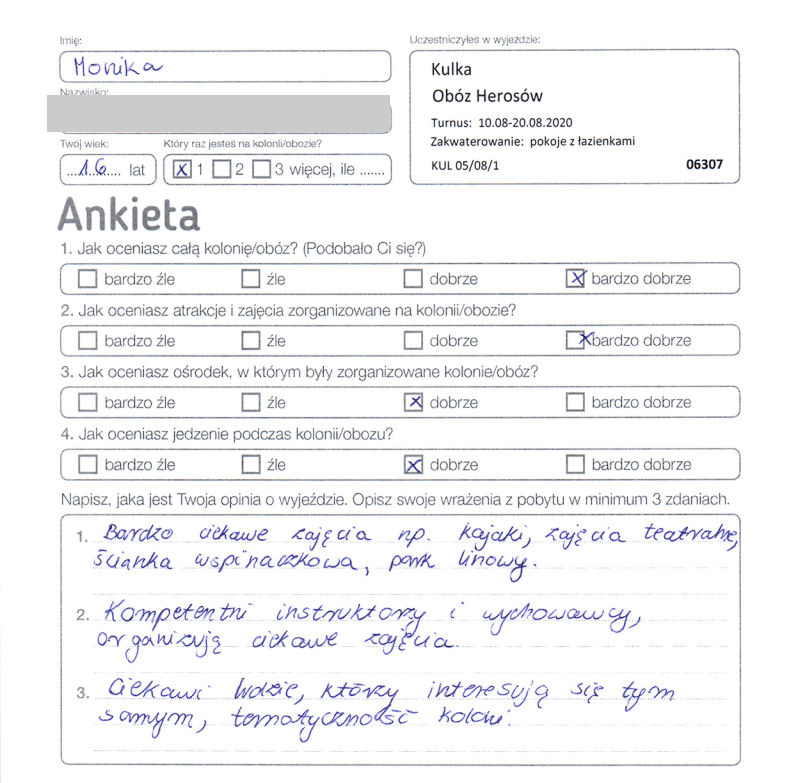 Imię:
Monika
Nazwisko:
Twój wiek:
...16.... lat
Który raz jesteś na kolonii/obozie?
x 1 2 3 więcej, ile .......
Uczestniczyłeś w wyjeździe:
Kulka
Obóz Herosów
Turnus: 10.08-20.08.2020
Zakwaterowanie: pokoje z łazienkami
KUL 05/08/1 06307
Ankieta
1. Jak oceniasz całą kolonię/obóz? (Podobało Ci się?)
bardzo źle źle dobrze x bardzo dobrze
2. Jak oceniasz atrakcje i zajęcia zorganizowane na kolonii/obozie?
bardzo źle źle dobrze x bardzo dobrze
3. Jak oceniasz ośrodek, w którym były zorganizowane kolonie/obóz?
bardzo źle źle x dobrze bardzo dobrze
4. Jak oceniasz jedzenie podczas kolonii/obozu?
bardzo źle źle x dobrze bardzo dobrze
Napisz, jaka jest Twoja opinia o wyjeździe. Opisz swoje wrażenia z pobytu w minimum 3 zdaniach.
1. Bardzo ciekawe zajęcia np. kajaki, zajęcia teatralne,
ścianka wspinaczkowa, park linowy.
2. Kompetentni instruktorzy i wychowawcy,
organizują ciekawe zajęcia.
3. Ciekawi ludzie, którzy interesują się tym
samym, tematyczność kolonii.